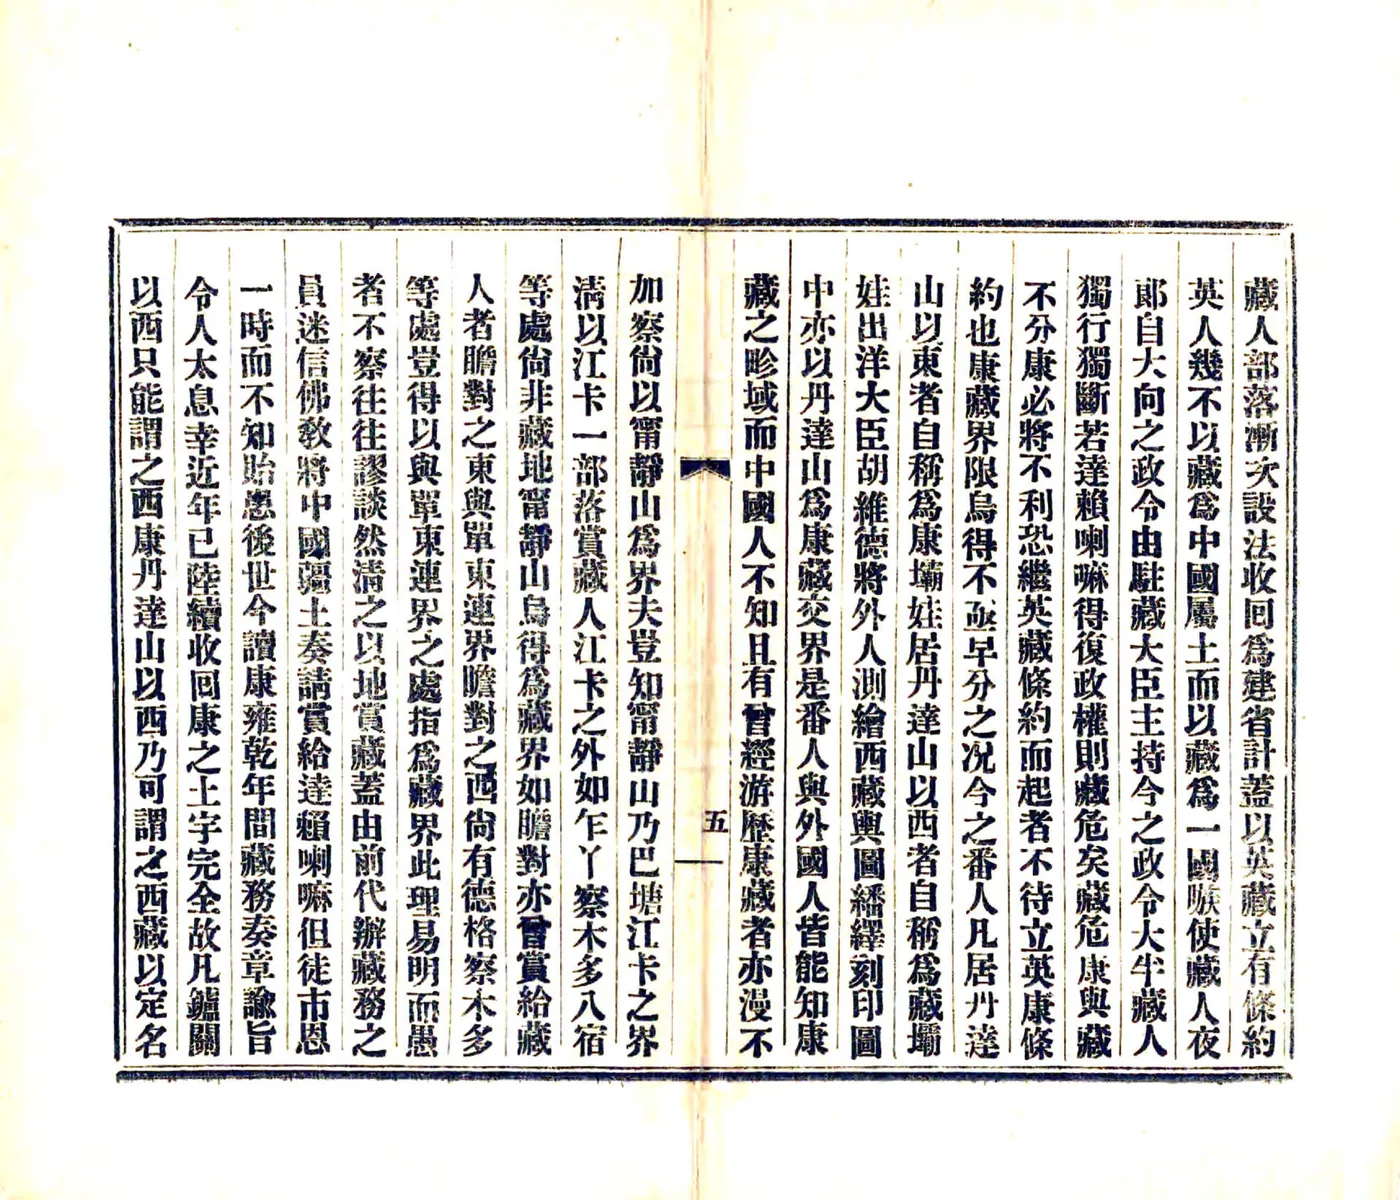 藏人部落漸次設法收回爲建省計蓋以英藏立有條約
英人幾不以藏爲中國屬土而以藏爲一國嗾使藏人夜
郞自大向之政令由駐藏大臣主持今之政令大半藏人
獨行獨斷若達賴喇嘛得復政權則藏危矣藏危康與藏
不分康必將不利恐繼英藏條約而起者不待立英康條
約也康藏界限烏得不亟早分之况今之番人凡居丹達
山以東者自稱爲康壩娃居丹達山以西者自稱爲藏壩
娃出洋大臣胡維德將外人測繪西藏輿圖繙繹刻印圖
中亦以丹達山爲康藏交界是番人與外國人皆能知康
藏之畛域而中國人不知且有曾經游歷康藏者亦漫不
五
加察尙以甯靜山爲界夫豈知甯靜山乃巴塘江卡之界
淸以江卡一部落賞藏人江卡之外如乍丫察木多八宿
等處尙非藏地甯靜山烏得爲藏界如瞻對亦曾賞給藏
人者瞻對之東與單東連界瞻對之西尙有德格察木多
等處豈得以與單東連界之處指爲藏界此理易明而愚
者不察往往謬談然淸之以地賞藏蓋由前代辦藏務之
員迷信佛敎將中國疆土奏請賞給達賴喇嘛但徒市恩
一時而不知貽愚後世今讀康雍乾年間藏務奏章諭旨
令人太息幸近年已陸續收回康之土宇完全故凡鑪關
以西只能謂之西康丹達山以西乃可謂之西藏以定名